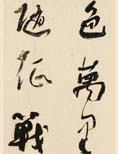 色萬里
随征戰